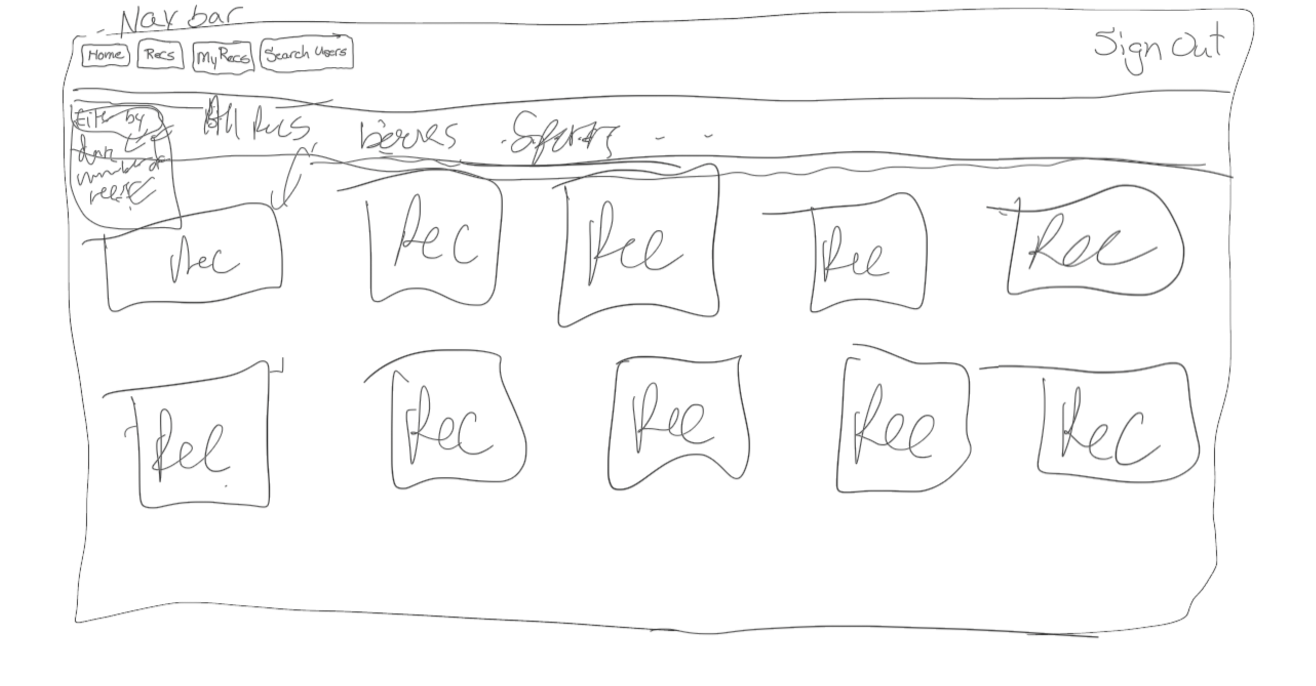 Nav bar
Home Recs My Recs Search Users Sign Out
Filter by All Recs Sports . . .
date
Rec Rec Rec Rec Rec
Rec Rec Rec Rec Rec